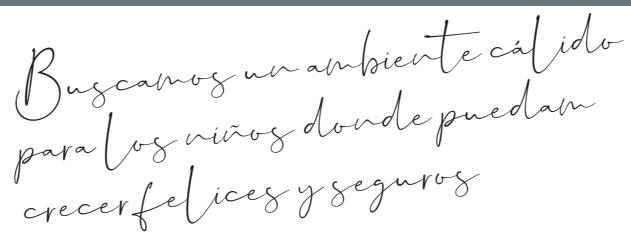 Buscamos un ambiente cálido
para los niños donde puedam
crecer felices y seguros